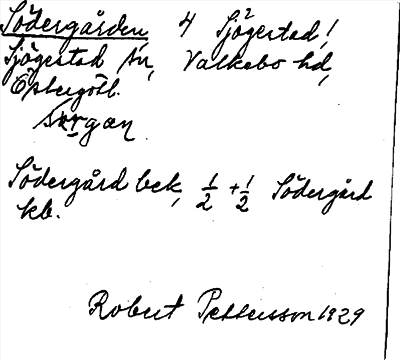 Södergården, 4 Sjögestad,
Sjögestad sn, Valkebo hd,
Östergötl.
Södergård bek, 1/2 + 1/2 Södergård
kb.
Robert Pettersson 1929